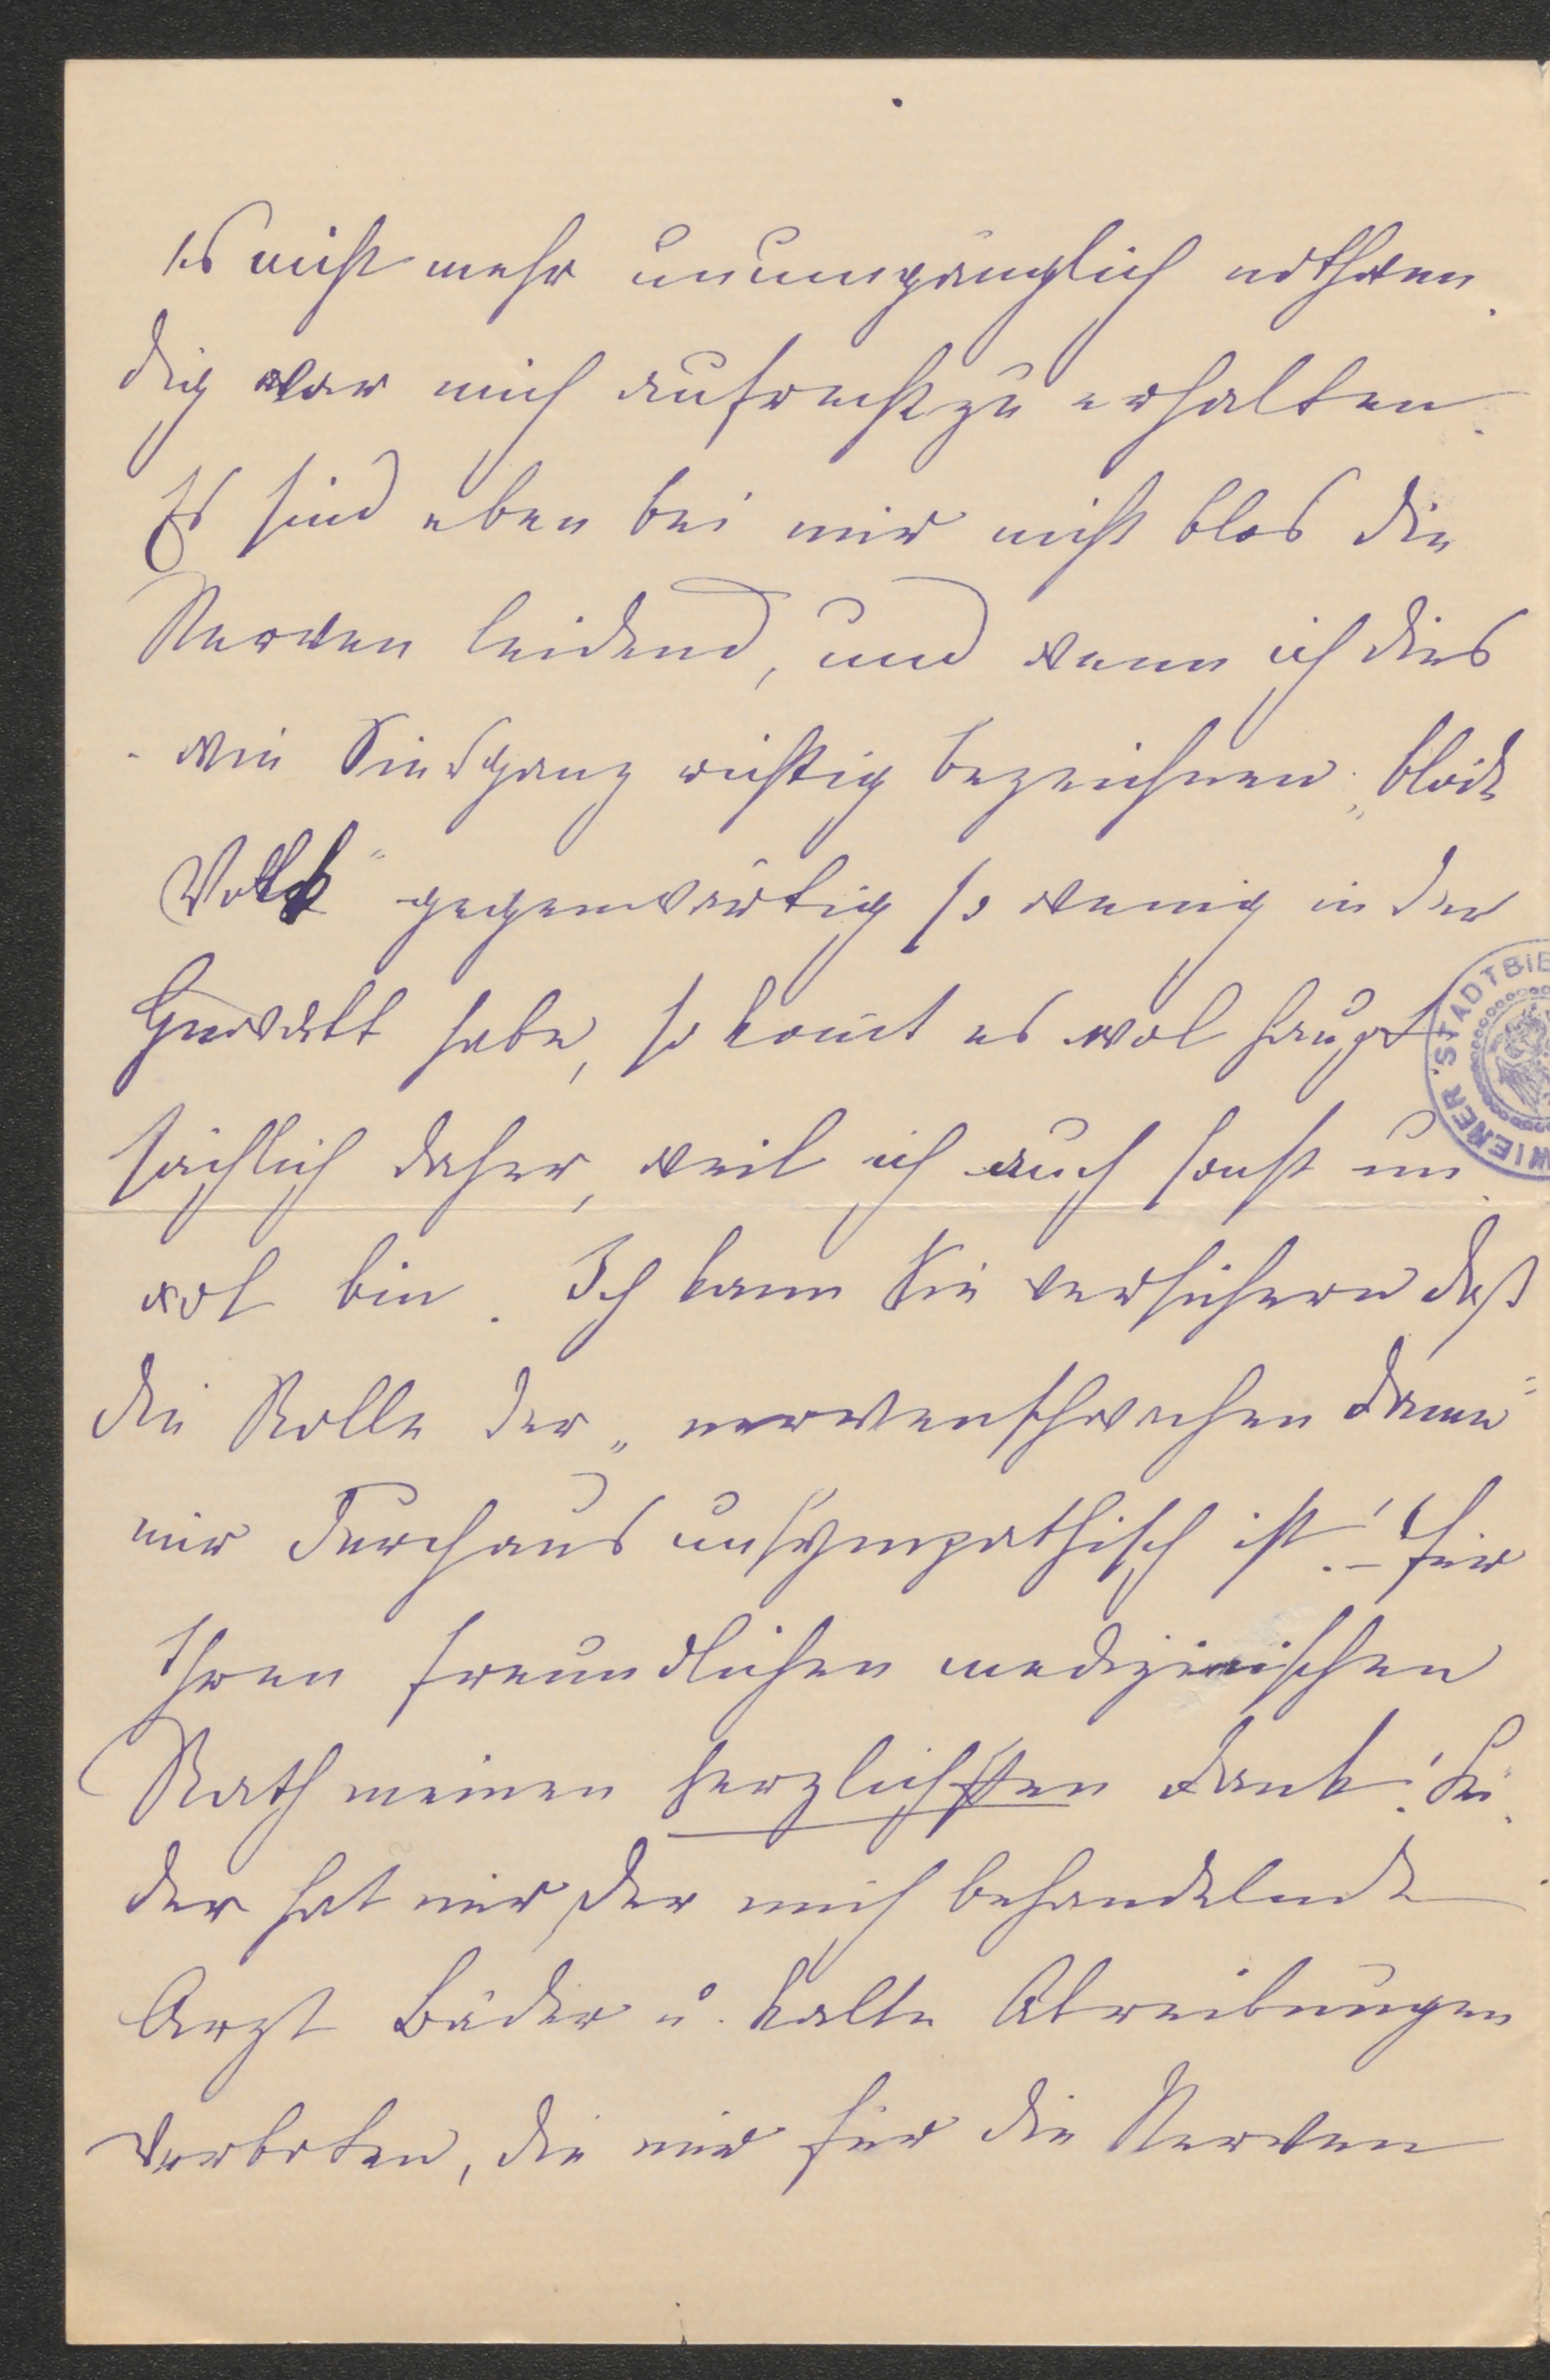 es nicht mehr unumgänglich nothwen
dig war mich aufrecht zu erhalten.
Es sind eben bei mir nicht blos die
Nerven leidend, und wenn ich dies
wie Sie es ganz richtig bezeichnen „blöde
Volk“ gegenwärtig so wenig in der
Gewalt habe, so kom̄t es wol haupt
sächlich daher, weil ich auch sonst un
wol bin. Ich kann Sie versichern daß
die Rolle der „nervenschwachen Dame“
mir durchaus unsympathisch ist! – Für
Ihren freundlichen medizinischen
Rath meinen herzlichsten Dank! Lei
der hat mir der mich behandelnde
Arzt Bäder u. kalte Abreibungen
verboten, die mir für die Nerven
WIENER STADTBIB